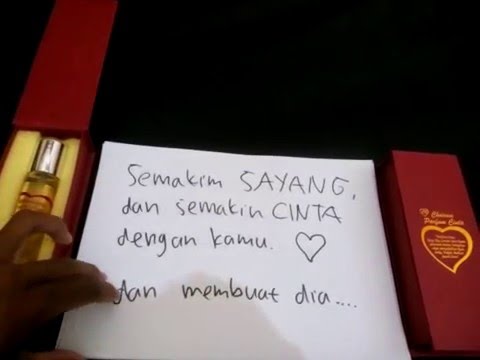 Semakim SAYANG,
dan semakin CINTA
dengan kamu. ♡
dan membuat dia....
Parfum Cinta